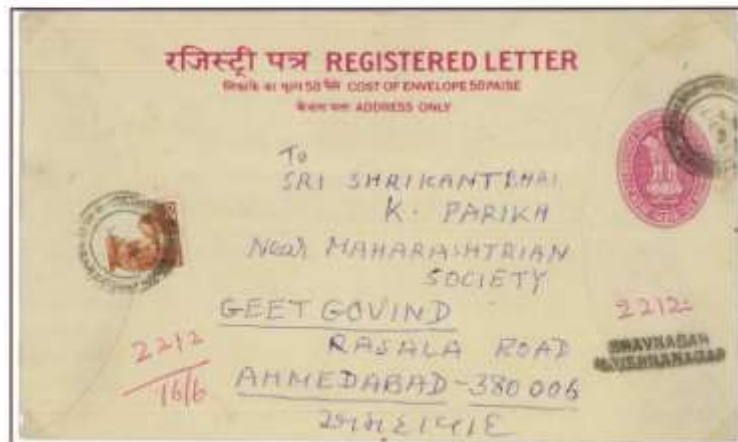 रजिस्ट्री पत्र REGISTERED LETTER
लिफाफे का मूल्य 50 पैसे COST OF ENVELOPE 50 PAISE
केवल पता ADDRESS ONLY
To
SRI SHRIKANTBHAI
K. PARIKH
Near MAHARASHTRIAN
SOCIETY
GEET GOVIND
RASALA ROAD
AHMEDABAD-380 006
અમદાવાદ
2212
BHAVNAGAR
2212
16/6